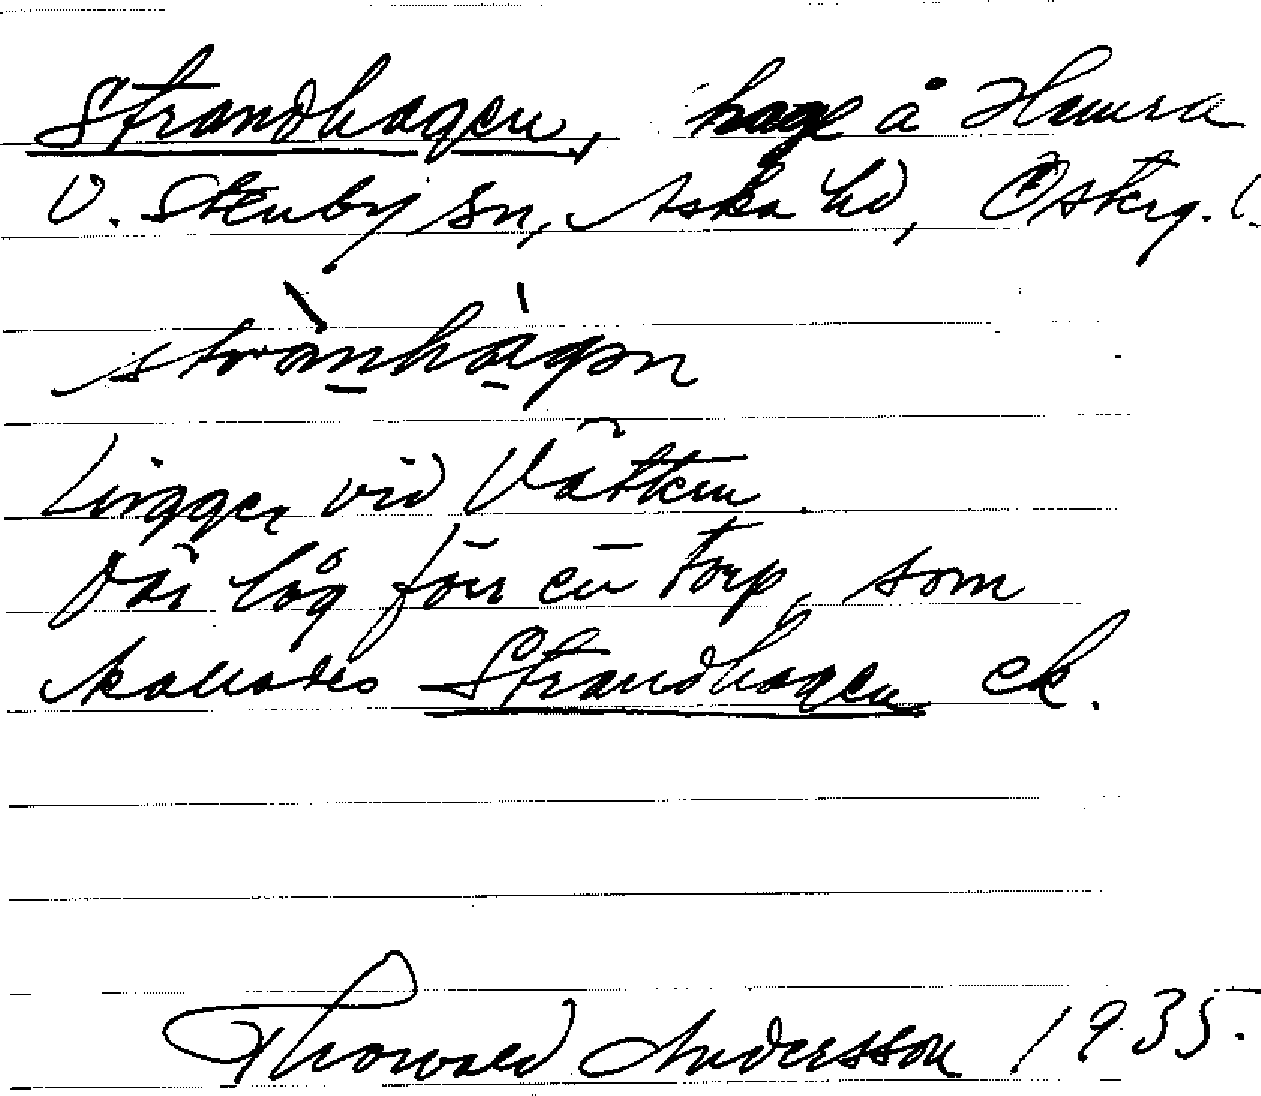 Strandhagen, hage å Hamra
V. Stenby sn, Aska hd, Österg. l.
strànhágən
Ligger vid Vättern.
Där låg förr en torp, som
kallades Strandhagen ek.
Thorwald Andersson 1935.